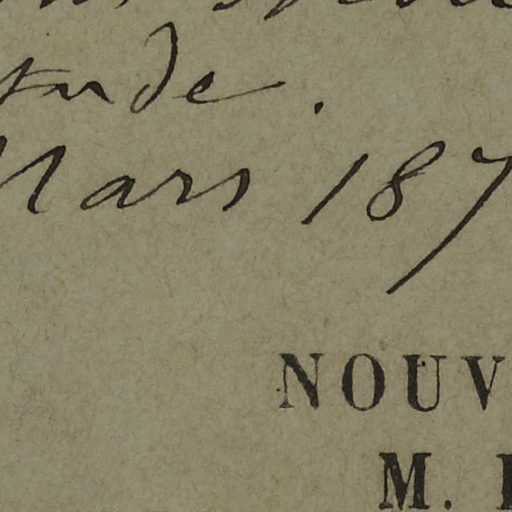 tude.
Mars 187
NOUV
M.